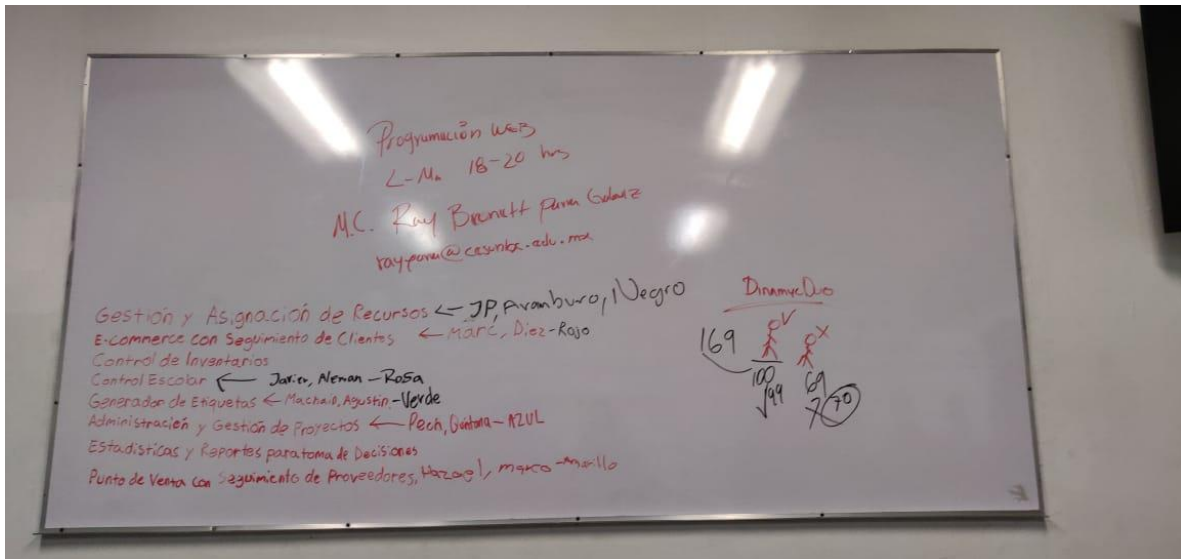 Programación WEB
L-Ma 18-20 hrs
M.C. Ray
Gestión y Asignación de Recursos ← JP, Aramburo, Negro
E-commerce con Seguimiento de Clientes ← Marc, Diez-Rojo
Control de Inventarios
Control Escolar ← Javier, Neman - Rosa
Generador de Etiquetas ← Machaio, Agustin, -Verde
Administración y Gestión de Proyectos ← Pech, Quintana - AZUL
Estadísticas y Reportes para toma de Decisiones
Punto de Venta con Seguimiento de Proveedores, marco - Amarillo
Dinamyc Duo
169
100 69
99 7 70